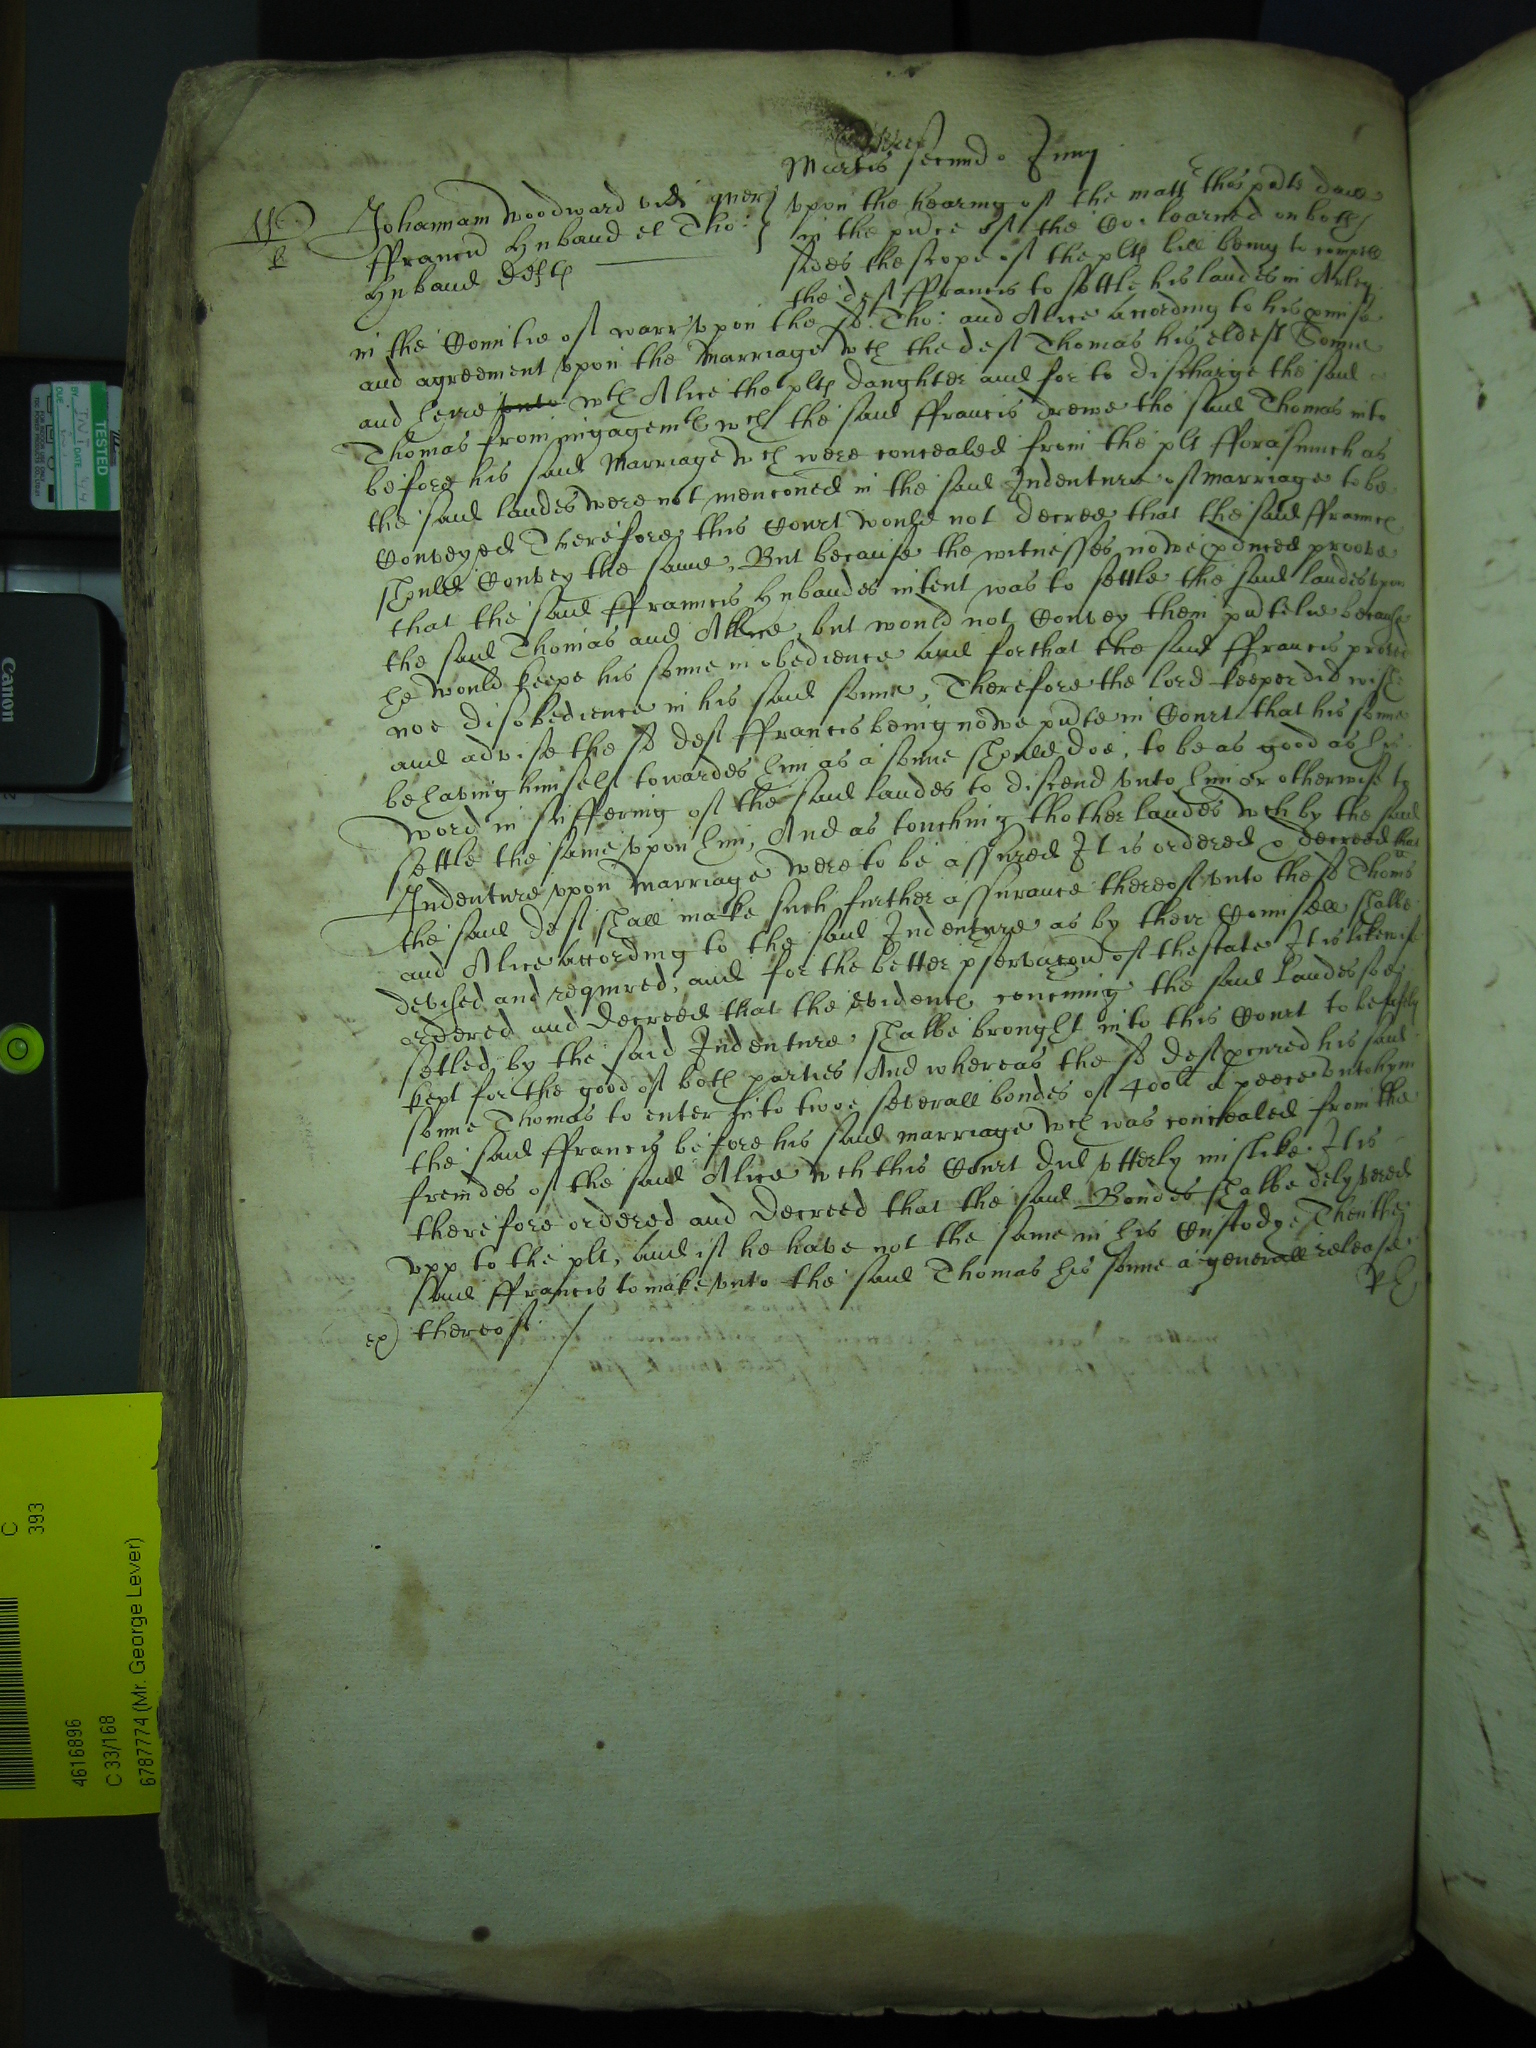 Martis secundo Junij
W
Johannam Woodward vid quer
ffranciu Hubaud et Tho:
Hubaud Defts
vpon the hearing of the matt this pnte daie
in the pnce of the Co: learned on both
sides the scope of the plts bill being to compell
the deft ffrancis to settle his landes in Arley
in the Countie of warr vpon the sd Tho: and Alice according to his pmise
and agreement vpon the Marriage wth the deft Thomas his eldest Sonne
and heire wth Alice the plts daughter and for to discharge the said
Thomas from ingagemts wch the said ffrancis drewe the said Thomas into
before his said Marriage wch were concealed from the plt fforasmuch as
the said landes were not menconed in the said Indenture of marriage to be
Conveyed Therefore this Court would not decree that the said ffrancis
should Convey the same, But because the witnesses nowe pduced proove
that the said ffrancis Hubaudes intent was to settle the said landes vpon
the said Thomas and Allice, but would not Convey them pntelie because
he would keepe his sonne in obedience and for that the said ffrancis proved
noe disobedience in his said sonne, Therefore the lord keeper did wish
and advise the sd deft ffrancis being nowe pnte in Court that his sonne
behaving himself towardes him as a sonne should doe, to be as good as his
word in suffering of the said landes to discend vnto him or otherwise to
settle the same vpon him, And as touching thother landes wch by the said
Indenture vpon marriage were to be assured It is ordered & decreed that
the said deft shall make such further assurance thereof vnto the sd Thoms
and Alice according to the said Indenture as by their Counsell shalbe
devised and required, and for the better pservacon of thestate It is likewise
ordered and decreed that the evidents concerning the said landes soe
setled by the said Indenture shalbe brought into this Court to be safely
kept for the good of both parties And whereas the sd deft pcured his said
sonne Thomas to enter into twoe severall bondes of 400l a peece vnto hym
the said ffrancis before his said marriage wch was concealed from the
freindes of the said Alice wch this Court did vtterly mislike It is
therefore ordered and decreed that the said Bondes shalbe delyvered
vpp to the plt, and if he have not the same in his Custodye Then the
said ffrancis to make vnto the said Thomas his sonne a generall release
ex) thereof.
TESTED
BY INT DATE
DUE
Canon
C
393
4616896
C 33/168
6787774 (Mr. George Lever)